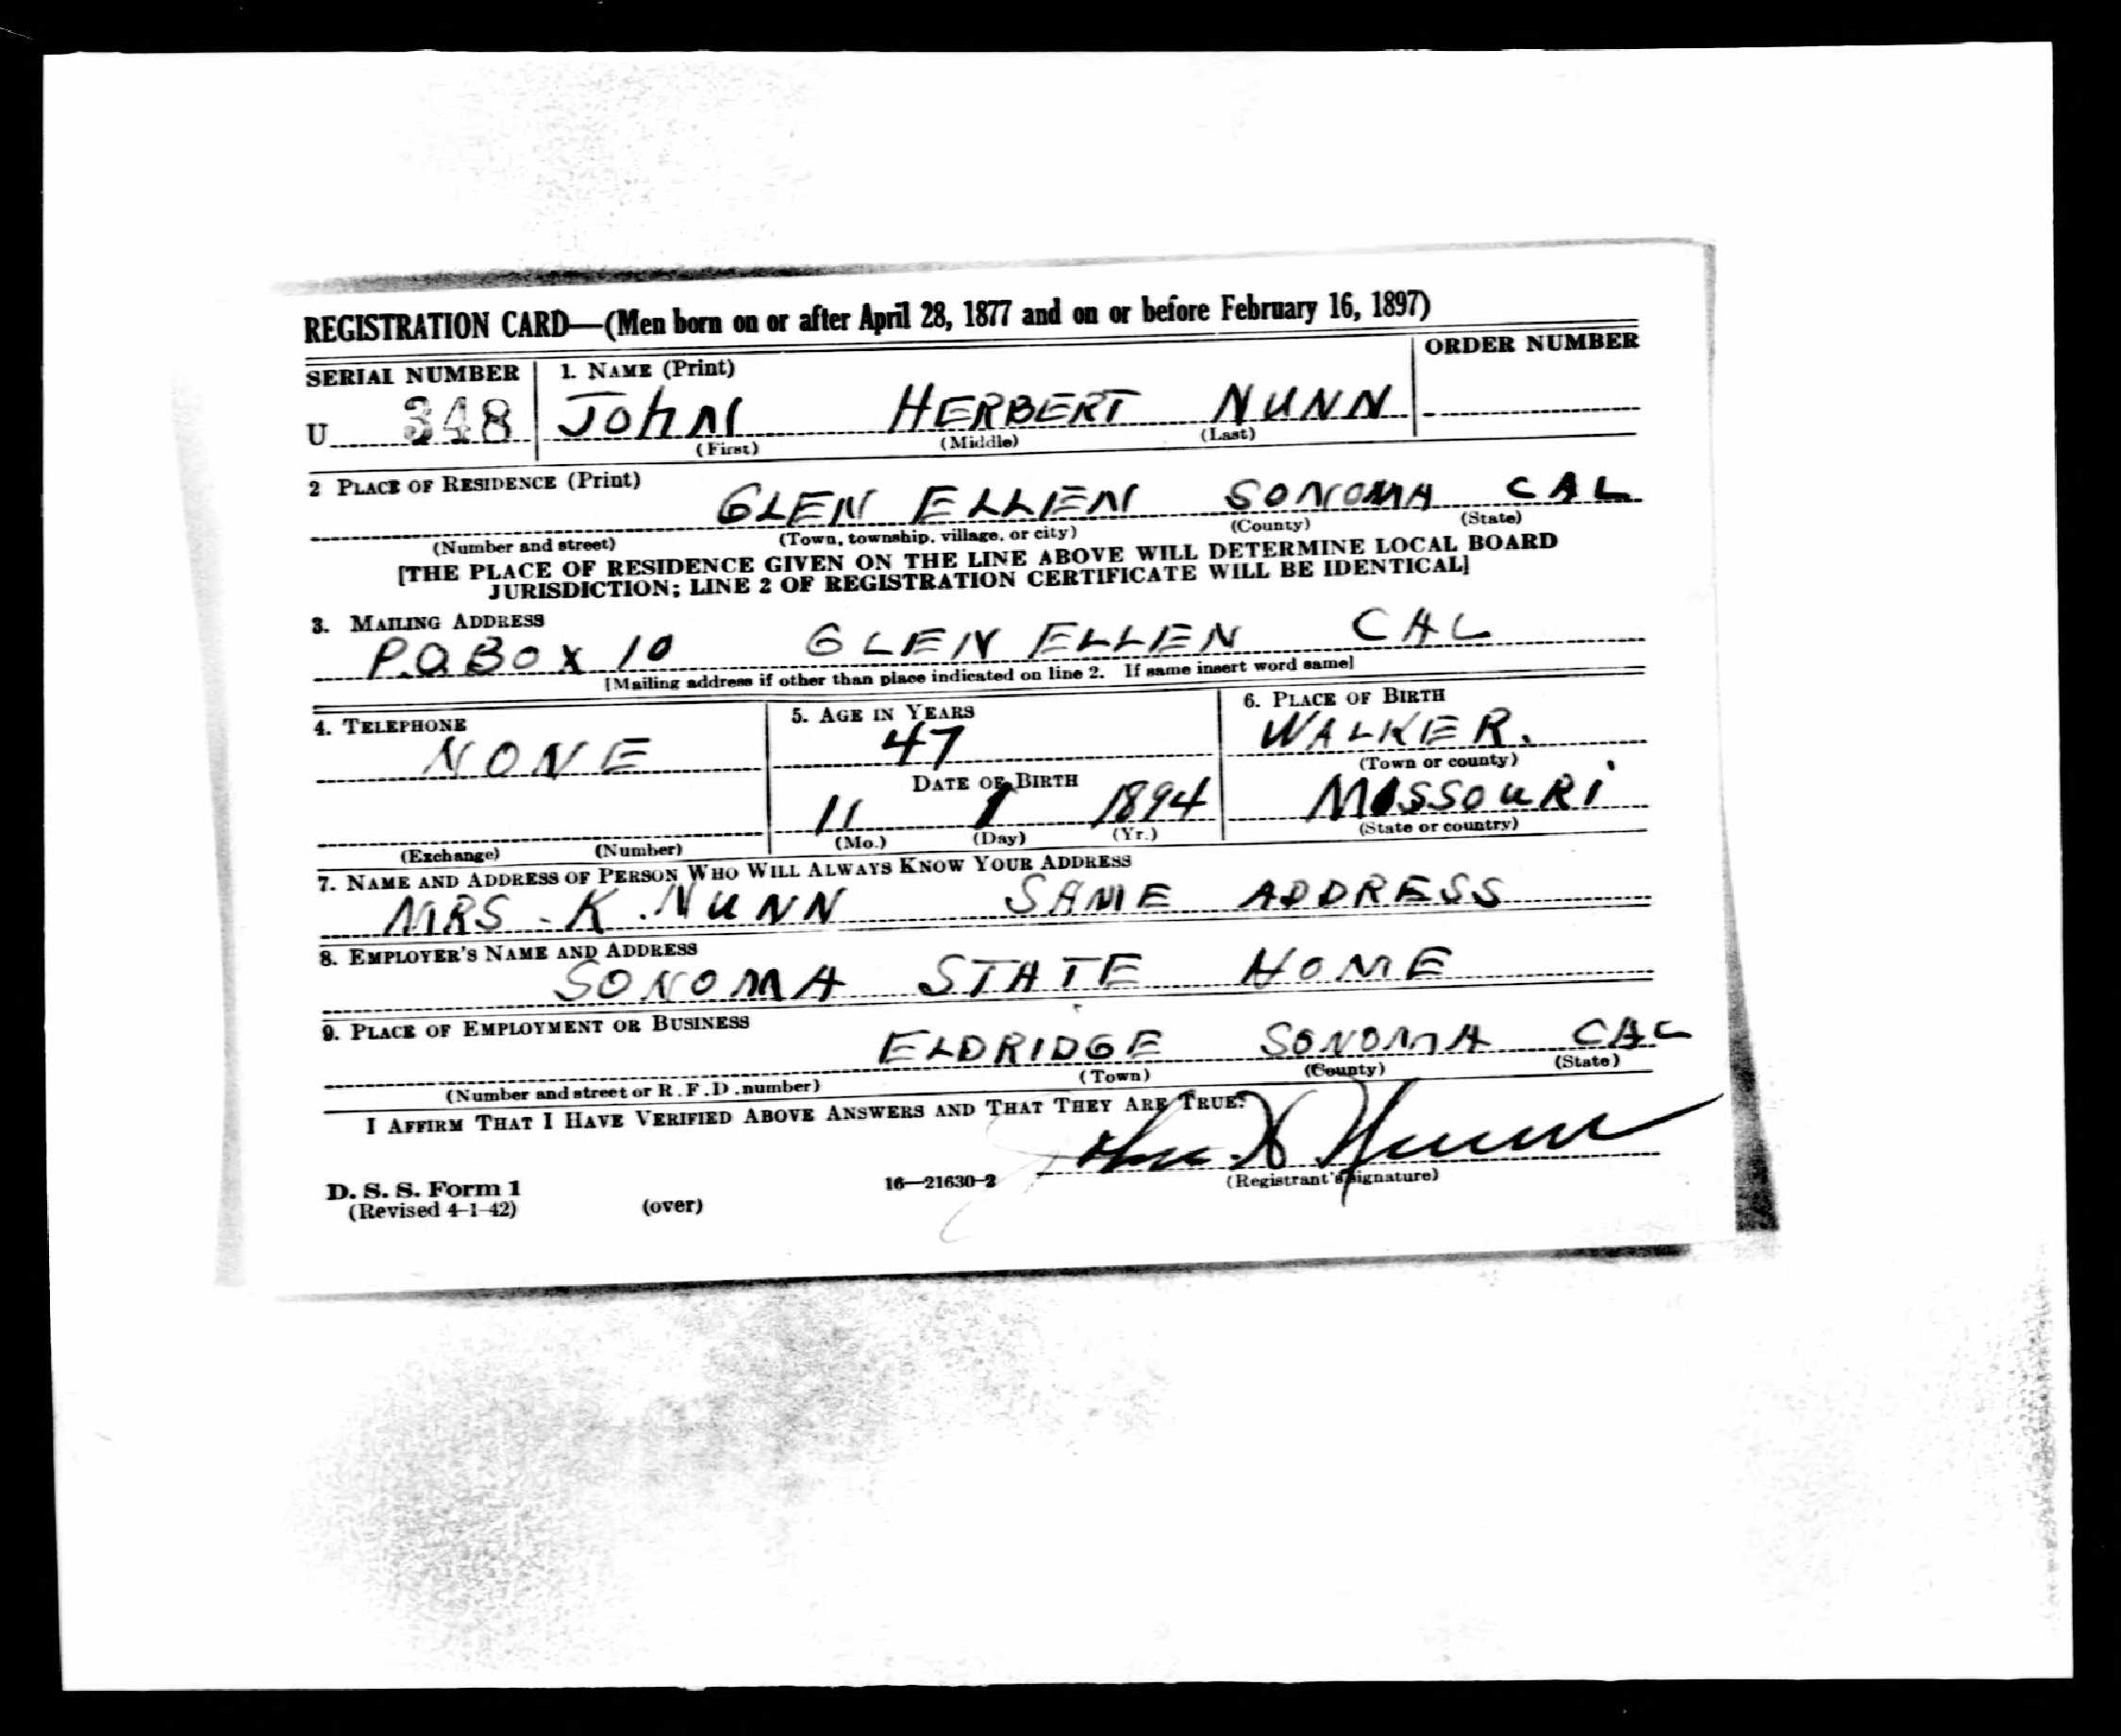 REGISTRATION CARD—(Men born on or after April 28, 1877 and on or before February 16, 1897)
SERIAL NUMBER 1. NAME (Print) ORDER NUMBER
U 348 JOHN HERBERT NUNN
(First) (Middle) (Last)
2 PLACE OF RESIDENCE (Print)
GLEN ELLEN SONOMA CAL
(Number and street) (Town, township, village, or city) (County) (State)
[THE PLACE OF RESIDENCE GIVEN ON THE LINE ABOVE WILL DETERMINE LOCAL BOARD
JURISDICTION; LINE 2 OF REGISTRATION CERTIFICATE WILL BE IDENTICAL]
3. MAILING ADDRESS
P.O. BOX 10 GLEN ELLEN CAL
[Mailing address if other than place indicated on line 2. If same insert word same]
4. TELEPHONE 5. AGE IN YEARS 6. PLACE OF BIRTH
NONE 47 WALKER.
(Town or county)
DATE OF BIRTH
11 1 1894 MISSOURI
(Exchange) (Number) (Mo.) (Day) (Yr.) (State or country)
7. NAME AND ADDRESS OF PERSON WHO WILL ALWAYS KNOW YOUR ADDRESS
MRS. K. NUNN SAME ADDRESS
8. EMPLOYER'S NAME AND ADDRESS
SONOMA STATE HOME
9. PLACE OF EMPLOYMENT OR BUSINESS
ELDRIDGE SONOMA CAL
(Number and street or R.F.D. number) (Town) (County) (State)
I AFFIRM THAT I HAVE VERIFIED ABOVE ANSWERS AND THAT THEY ARE TRUE.
John H Nunn
D. S. S. Form 1 16—21630-2 (Registrant's signature)
(Revised 4-1-42) (over)